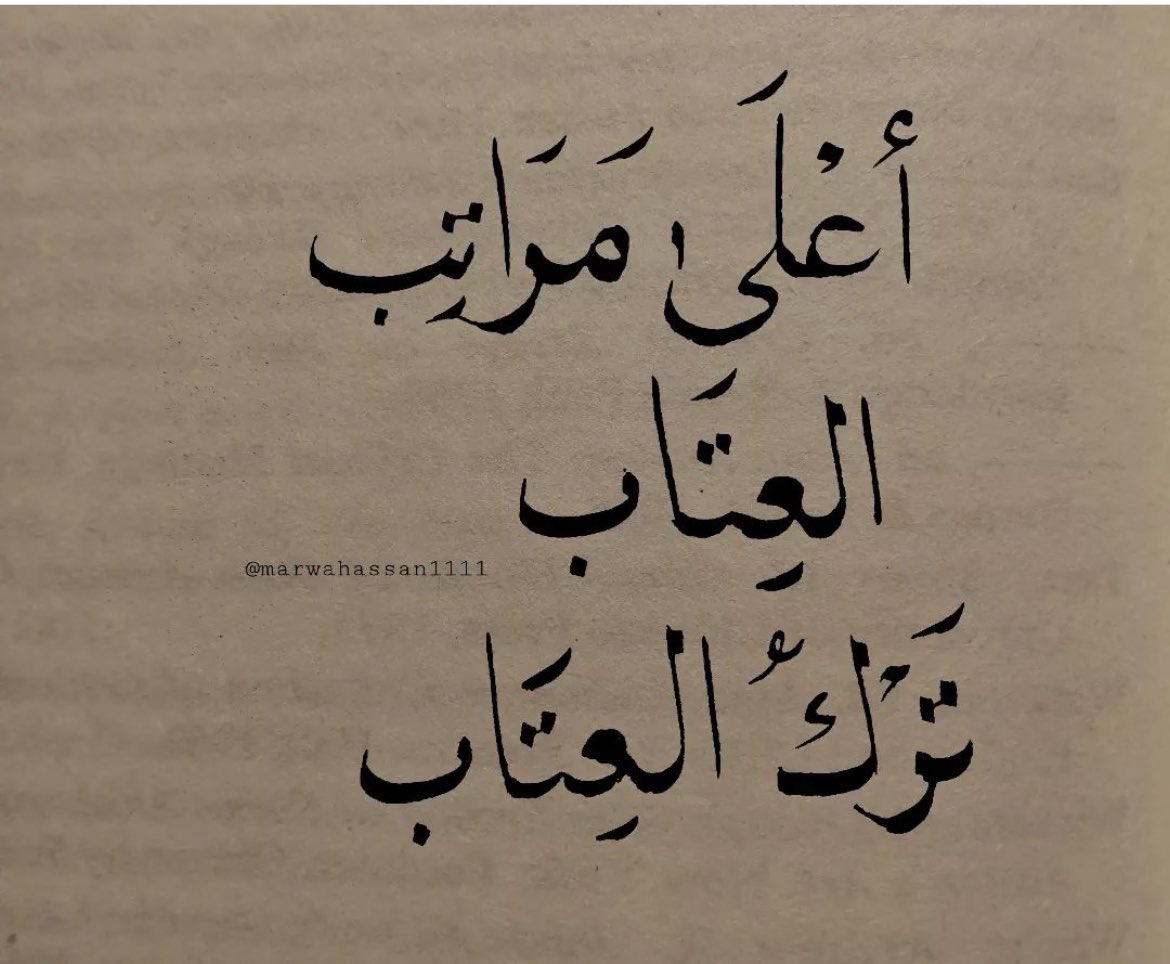 أَعْلَى مَرَاتِب
العِتَاب
@marwahassan1111
تَرْكُ العِتَاب